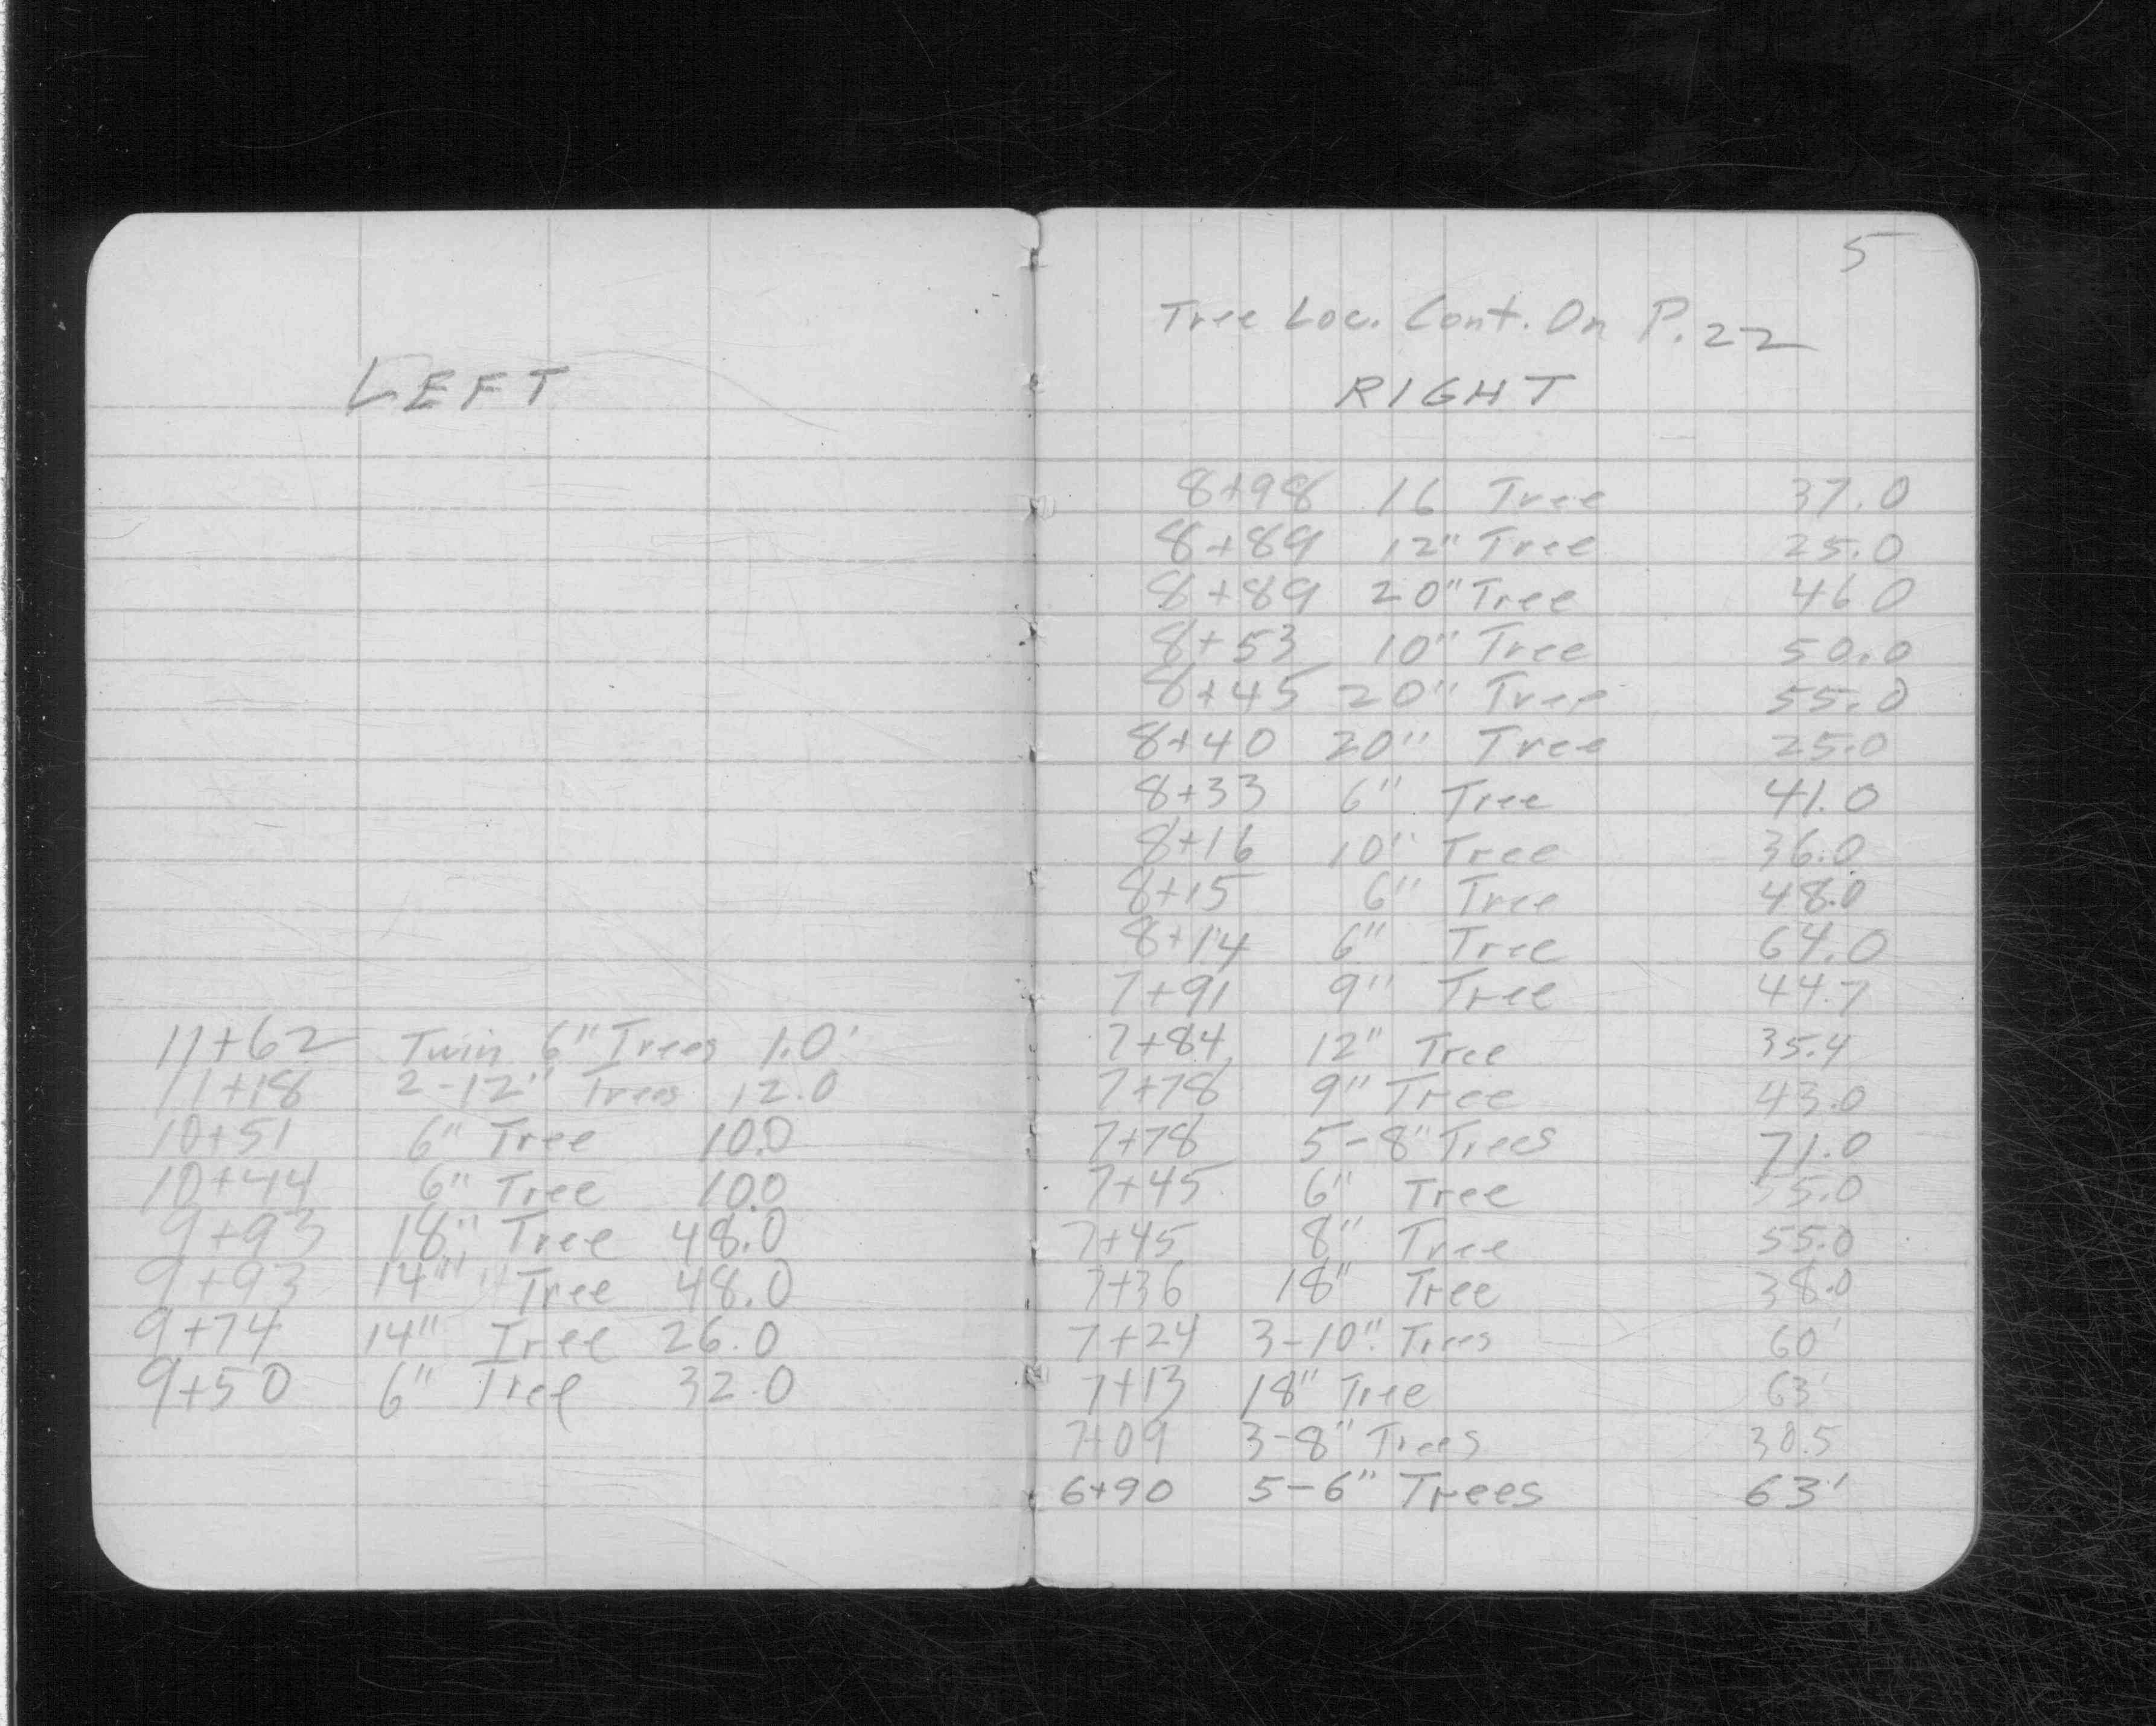 LEFT
11+62 Twin 6" Trees 1.0'
11+18 2-12" Trees 12.0
10+51 6" Tree 10.0
10+44 6" Tree 10.0
9+93 18" Tree 48.0
9+93 14" Tree 48.0
9+74 14" Tree 26.0
9+50 6" Tree 32.0
5
Tree Loc. Cont. On P.22
RIGHT
8+98 16 Tree 37.0
8+89 12" Tree 25.0
8+89 20" Tree 46.0
8+53 10" Tree 50.0
8+45 20" Tree 55.0
8+40 20" Tree 25.0
8+33 6" Tree 41.0
8+16 10" Tree 36.0
8+15 6" Tree 48.0
8+14 6" Tree 64.0
7+91 9" Tree 44.7
7+84 12" Tree 35.4
7+78 9" Tree 43.0
7+78 5-8" Trees 71.0
7+45 6" Tree
7+45 8" Tree 55.0
7+36 18" Tree 38.0
7+24 3-10" Trees 60'
7+13 18" Tree 63'
7+09 3-8" Trees 30.5
6+90 5-6" Trees 63'